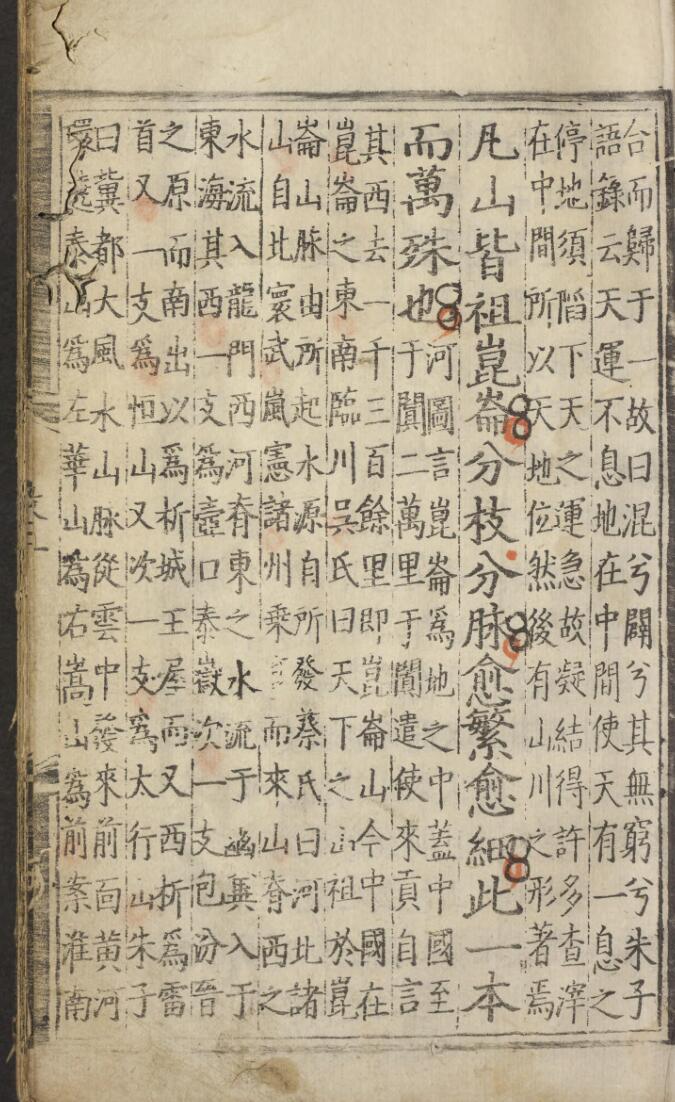 台而歸于一故曰混兮闢兮其無窮兮朱子
語錄云天運不息地在中間使天有一息之
停地須陷下天之運急故疑結得許多查滓
在中間所以天地位然後有山川之形著焉
凡山皆祖崑崙分枝分脉愈繁愈細此一本
而萬殊也
河圖言崑崙為地之中蓋中國至
于闐二萬里于闐遣使來貢自言
其西去一千三百餘里即崑崙山今中國在
崑崙之東南臨川吳氏曰天下之山祖於崑
崙山脉由所起水源自所發蔡氏曰河北諸
山自北寰武嵐憲諸州乘而來山脊西之
水流入龍門西河脊東之水流于幽冀入于
東海其西一支為壺口泰嶽次一支包汾晉
之原而南出以為析城王屋而又西折為雷
首又一支為恒山又次一支為太行山朱子
曰冀都大風水山脉從雲中發來前面黃河
環遶泰山為左華山為右嵩山為前案淮南